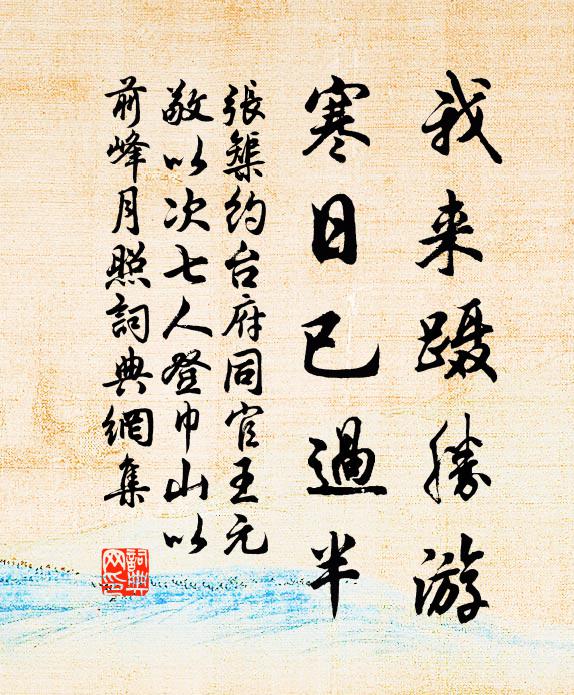 我来蹑勝游
寒日已過半
張榘約台府同官王元
敬以次七人登巾山以
前峰月照詞典網集
詞典网印